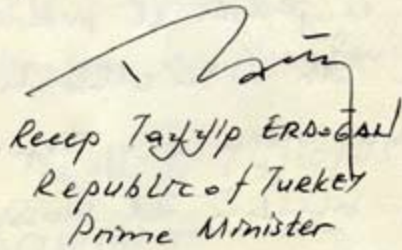 Recep Tayyip ERDOGAN
Republic of TURKEY
Prime Minister